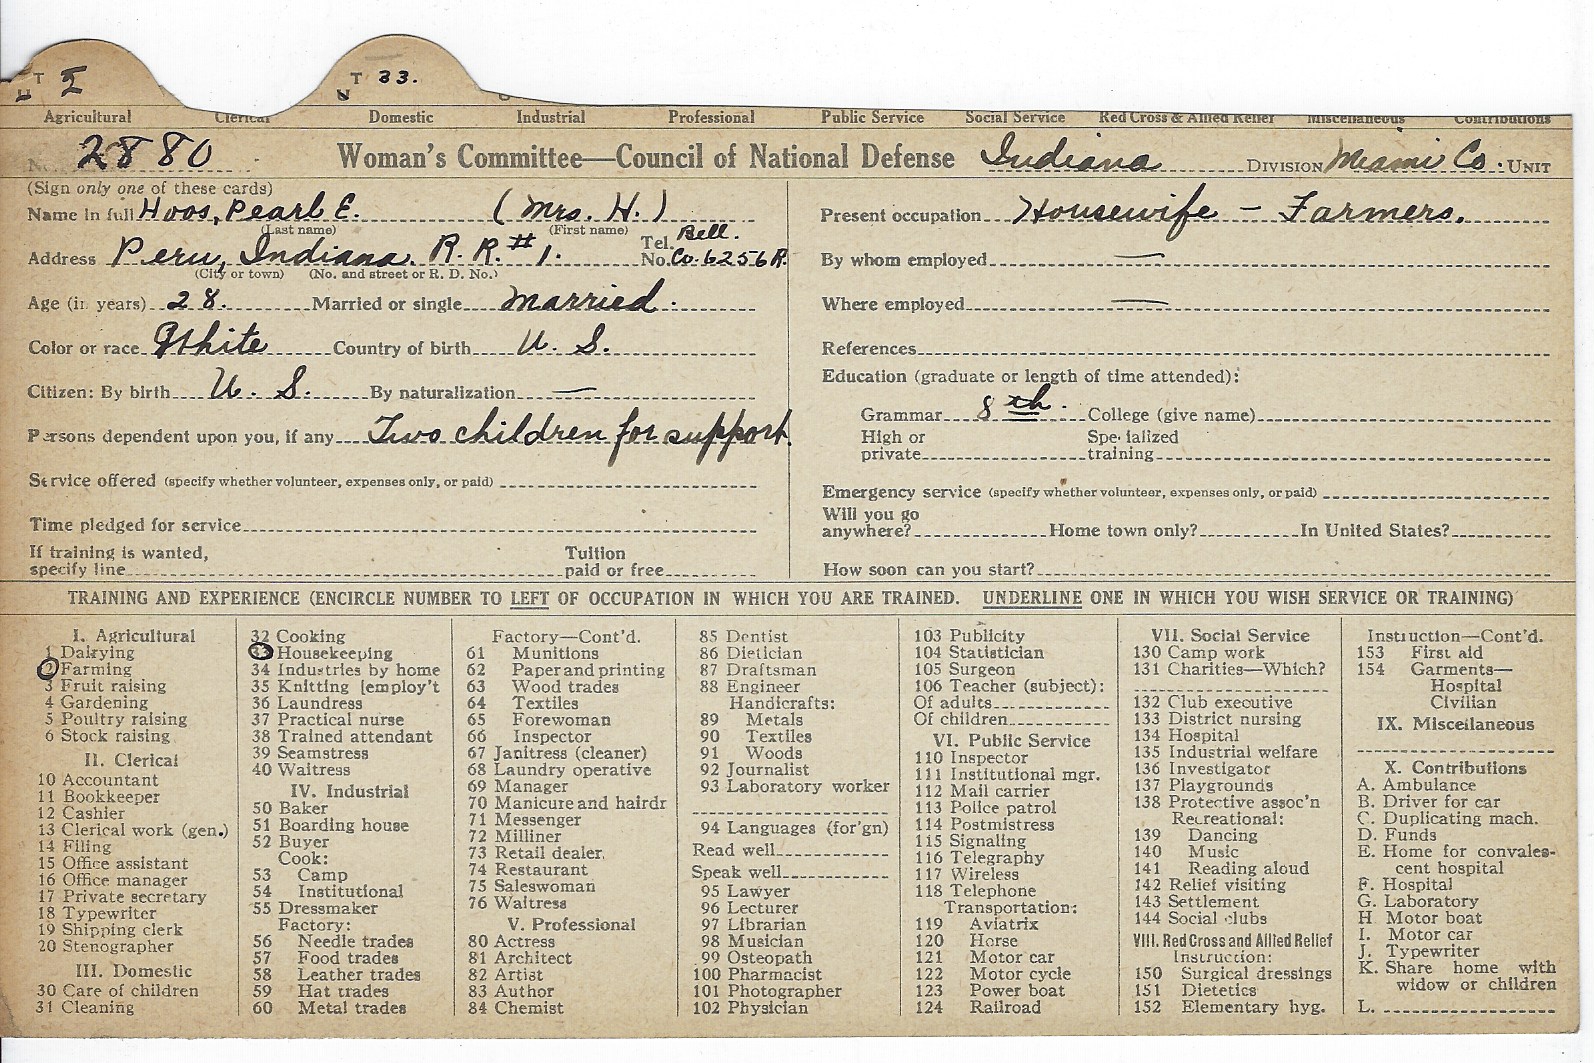 T I
T 33.
Agricultural Clerical Domestic Industrial Professional Public Service Social Service Red Cross & Allied Relief Miscellaneous Contributions
No. 2880 Woman's Committee—Council of National Defense Indiana DIVISION Miami Co. UNIT
(Sign only one of these cards)
Name in full Hoos, Pearl E. (Mrs. H.)
(Last name) (First name)
Address Peru, Indiana. R. R. # 1. Tel. No. Bell. Co. 6256R.
(City or town) (No. and street or R. D. No.)
Age (in years) 28. Married or single Married.
Color or race White Country of birth U. S.
Citizen: By birth U. S. By naturalization —
Persons dependent upon you, if any Two children for support.
Service offered (specify whether volunteer, expenses only, or paid)
Time pledged for service
If training is wanted,
specify line
Tuition
paid or free
Present occupation Housewife - Farmers.
By whom employed —
Where employed —
References
Education (graduate or length of time attended):
Grammar 8th. College (give name)
High or
private
Specialized
training
Emergency service (specify whether volunteer, expenses only, or paid)
Will you go
anywhere? Home town only? In United States?
How soon can you start?
TRAINING AND EXPERIENCE (ENCIRCLE NUMBER TO LEFT OF OCCUPATION IN WHICH YOU ARE TRAINED. UNDERLINE ONE IN WHICH YOU WISH SERVICE OR TRAINING)
I. Agricultural
1 Dairying
2 Farming
3 Fruit raising
4 Gardening
5 Poultry raising
6 Stock raising
II. Clerical
10 Accountant
11 Bookkeeper
12 Cashier
13 Clerical work (gen.)
14 Filing
15 Office assistant
16 Office manager
17 Private secretary
18 Typewriter
19 Shipping clerk
20 Stenographer
III. Domestic
30 Care of children
31 Cleaning
32 Cooking
33 Housekeeping
34 Industries by home
35 Knitting [employ't
36 Laundress
37 Practical nurse
38 Trained attendant
39 Seamstress
40 Waitress
IV. Industrial
50 Baker
51 Boarding house
52 Buyer
Cook:
53 Camp
54 Institutional
55 Dressmaker
Factory:
56 Needle trades
57 Food trades
58 Leather trades
59 Hat trades
60 Metal trades
Factory—Cont'd.
61 Munitions
62 Paper and printing
63 Wood trades
64 Textiles
65 Forewoman
66 Inspector
67 Janitress (cleaner)
68 Laundry operative
69 Manager
70 Manicure and hairdr
71 Messenger
72 Milliner
73 Retail dealer
74 Restaurant
75 Saleswoman
76 Waitress
V. Professional
80 Actress
81 Architect
82 Artist
83 Author
84 Chemist
85 Dentist
86 Dietician
87 Draftsman
88 Engineer
Handicrafts:
89 Metals
90 Textiles
91 Woods
92 Journalist
93 Laboratory worker
94 Languages (for'gn)
Read well
Speak well
95 Lawyer
96 Lecturer
97 Librarian
98 Musician
99 Osteopath
100 Pharmacist
101 Photographer
102 Physician
103 Publicity
104 Statistician
105 Surgeon
106 Teacher (subject):
Of adults
Of children
VI. Public Service
110 Inspector
111 Institutional mgr.
112 Mail carrier
113 Police patrol
114 Postmistress
115 Signaling
116 Telegraphy
117 Wireless
118 Telephone
Transportation:
119 Aviatrix
120 Horse
121 Motor car
122 Motor cycle
123 Power boat
124 Railroad
VII. Social Service
130 Camp work
131 Charities—Which?
132 Club executive
133 District nursing
134 Hospital
135 Industrial welfare
136 Investigator
137 Playgrounds
138 Protective assoc'n
Recreational:
139 Dancing
140 Music
141 Reading aloud
142 Relief visiting
143 Settlement
144 Social clubs
VIII. Red Cross and Allied Relief
Instruction:
150 Surgical dressings
151 Dietetics
152 Elementary hyg.
Instruction—Cont'd.
153 First aid
154 Garments—
Hospital
Civilian
IX. Miscellaneous
X. Contributions
A. Ambulance
B. Driver for car
C. Duplicating mach.
D. Funds
E. Home for convales-
cent hospital
F. Hospital
G. Laboratory
H Motor boat
I. Motor car
J. Typewriter
K. Share home with
widow or children
L.